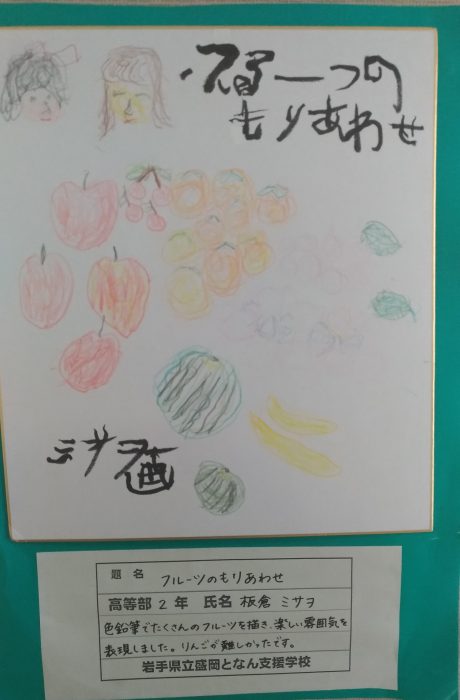 フルーツの
もりあわせ
ミサヲ画
題 名 フルーツのもりあわせ
高等部 2 年 氏名 板倉 ミサヲ
色鉛筆でたくさんのフルーツを描き、楽しい雰囲気を
表現しました。りんごが難しかったです。
岩手県立盛岡となん支援学校